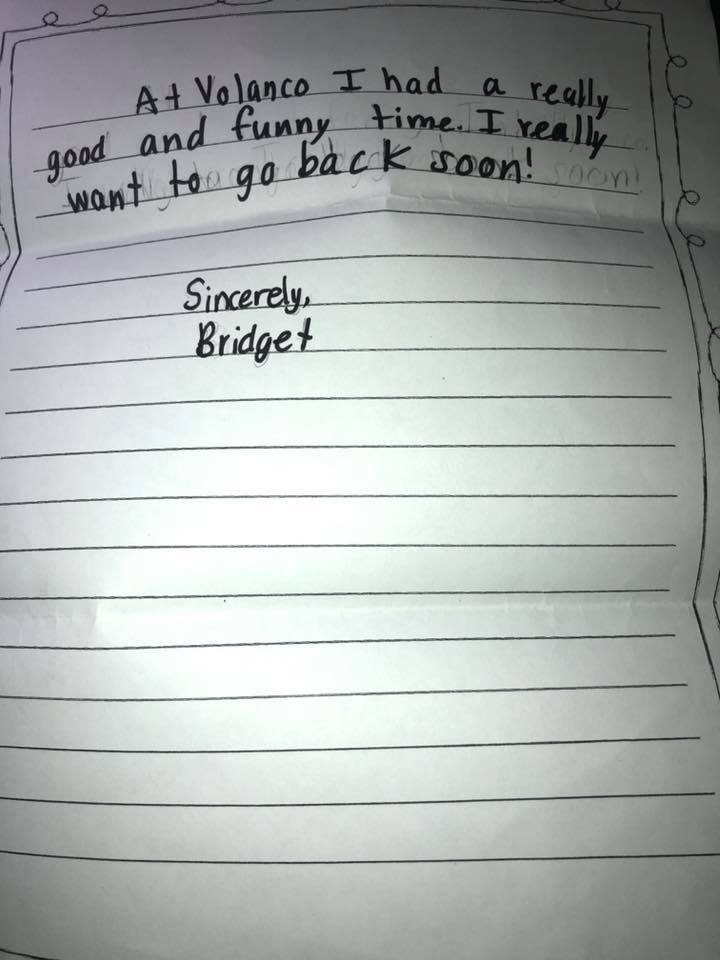 At Volanco I had a really
good and funny time. I really
want to go back soon! soon!
Sincerely,
Bridget